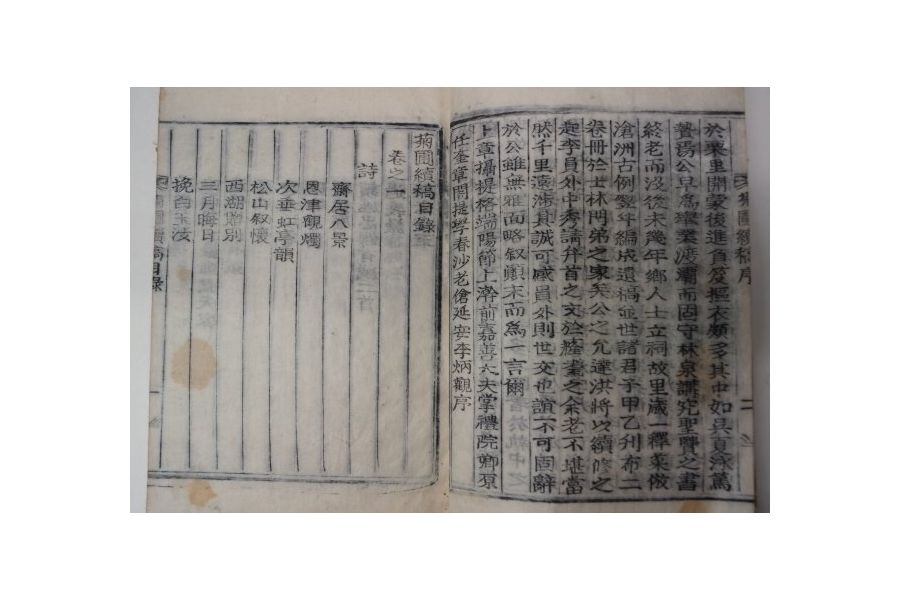 於栗里開蒙後進負笈摳衣頗多其中如吳夏泳篤
贄湯公早高擧業淡灑而固守林泉講究聖賢之書
終老而沒後未幾年鄕人士立祠故里歲一釋菜倣
滄洲古例製年編成遺稿並世諸君子甲乙刋布二
卷冊於士林門弟之家矣公之允達洪將以續修之
起李員外中秀請弁首之文於癃耋之余老不堪當
然千里遠涉其誠可感員外則世交也誼不可固辭
於公雖無雅而略叙顚末而爲一言爾
上章攝提格端陽節上澣前嘉善大夫掌禮院卿原
任奎章閣提學春沙老傖延安李炳觀序
菊圃續稿序
二
菊圃續稿目錄
卷之一
詩
齋居八景
恩津觀燭
次垂虹亭韻
松山叙懷
西湖贈別
三月晦日
挽白玉汝
菊圃續稿目錄
一